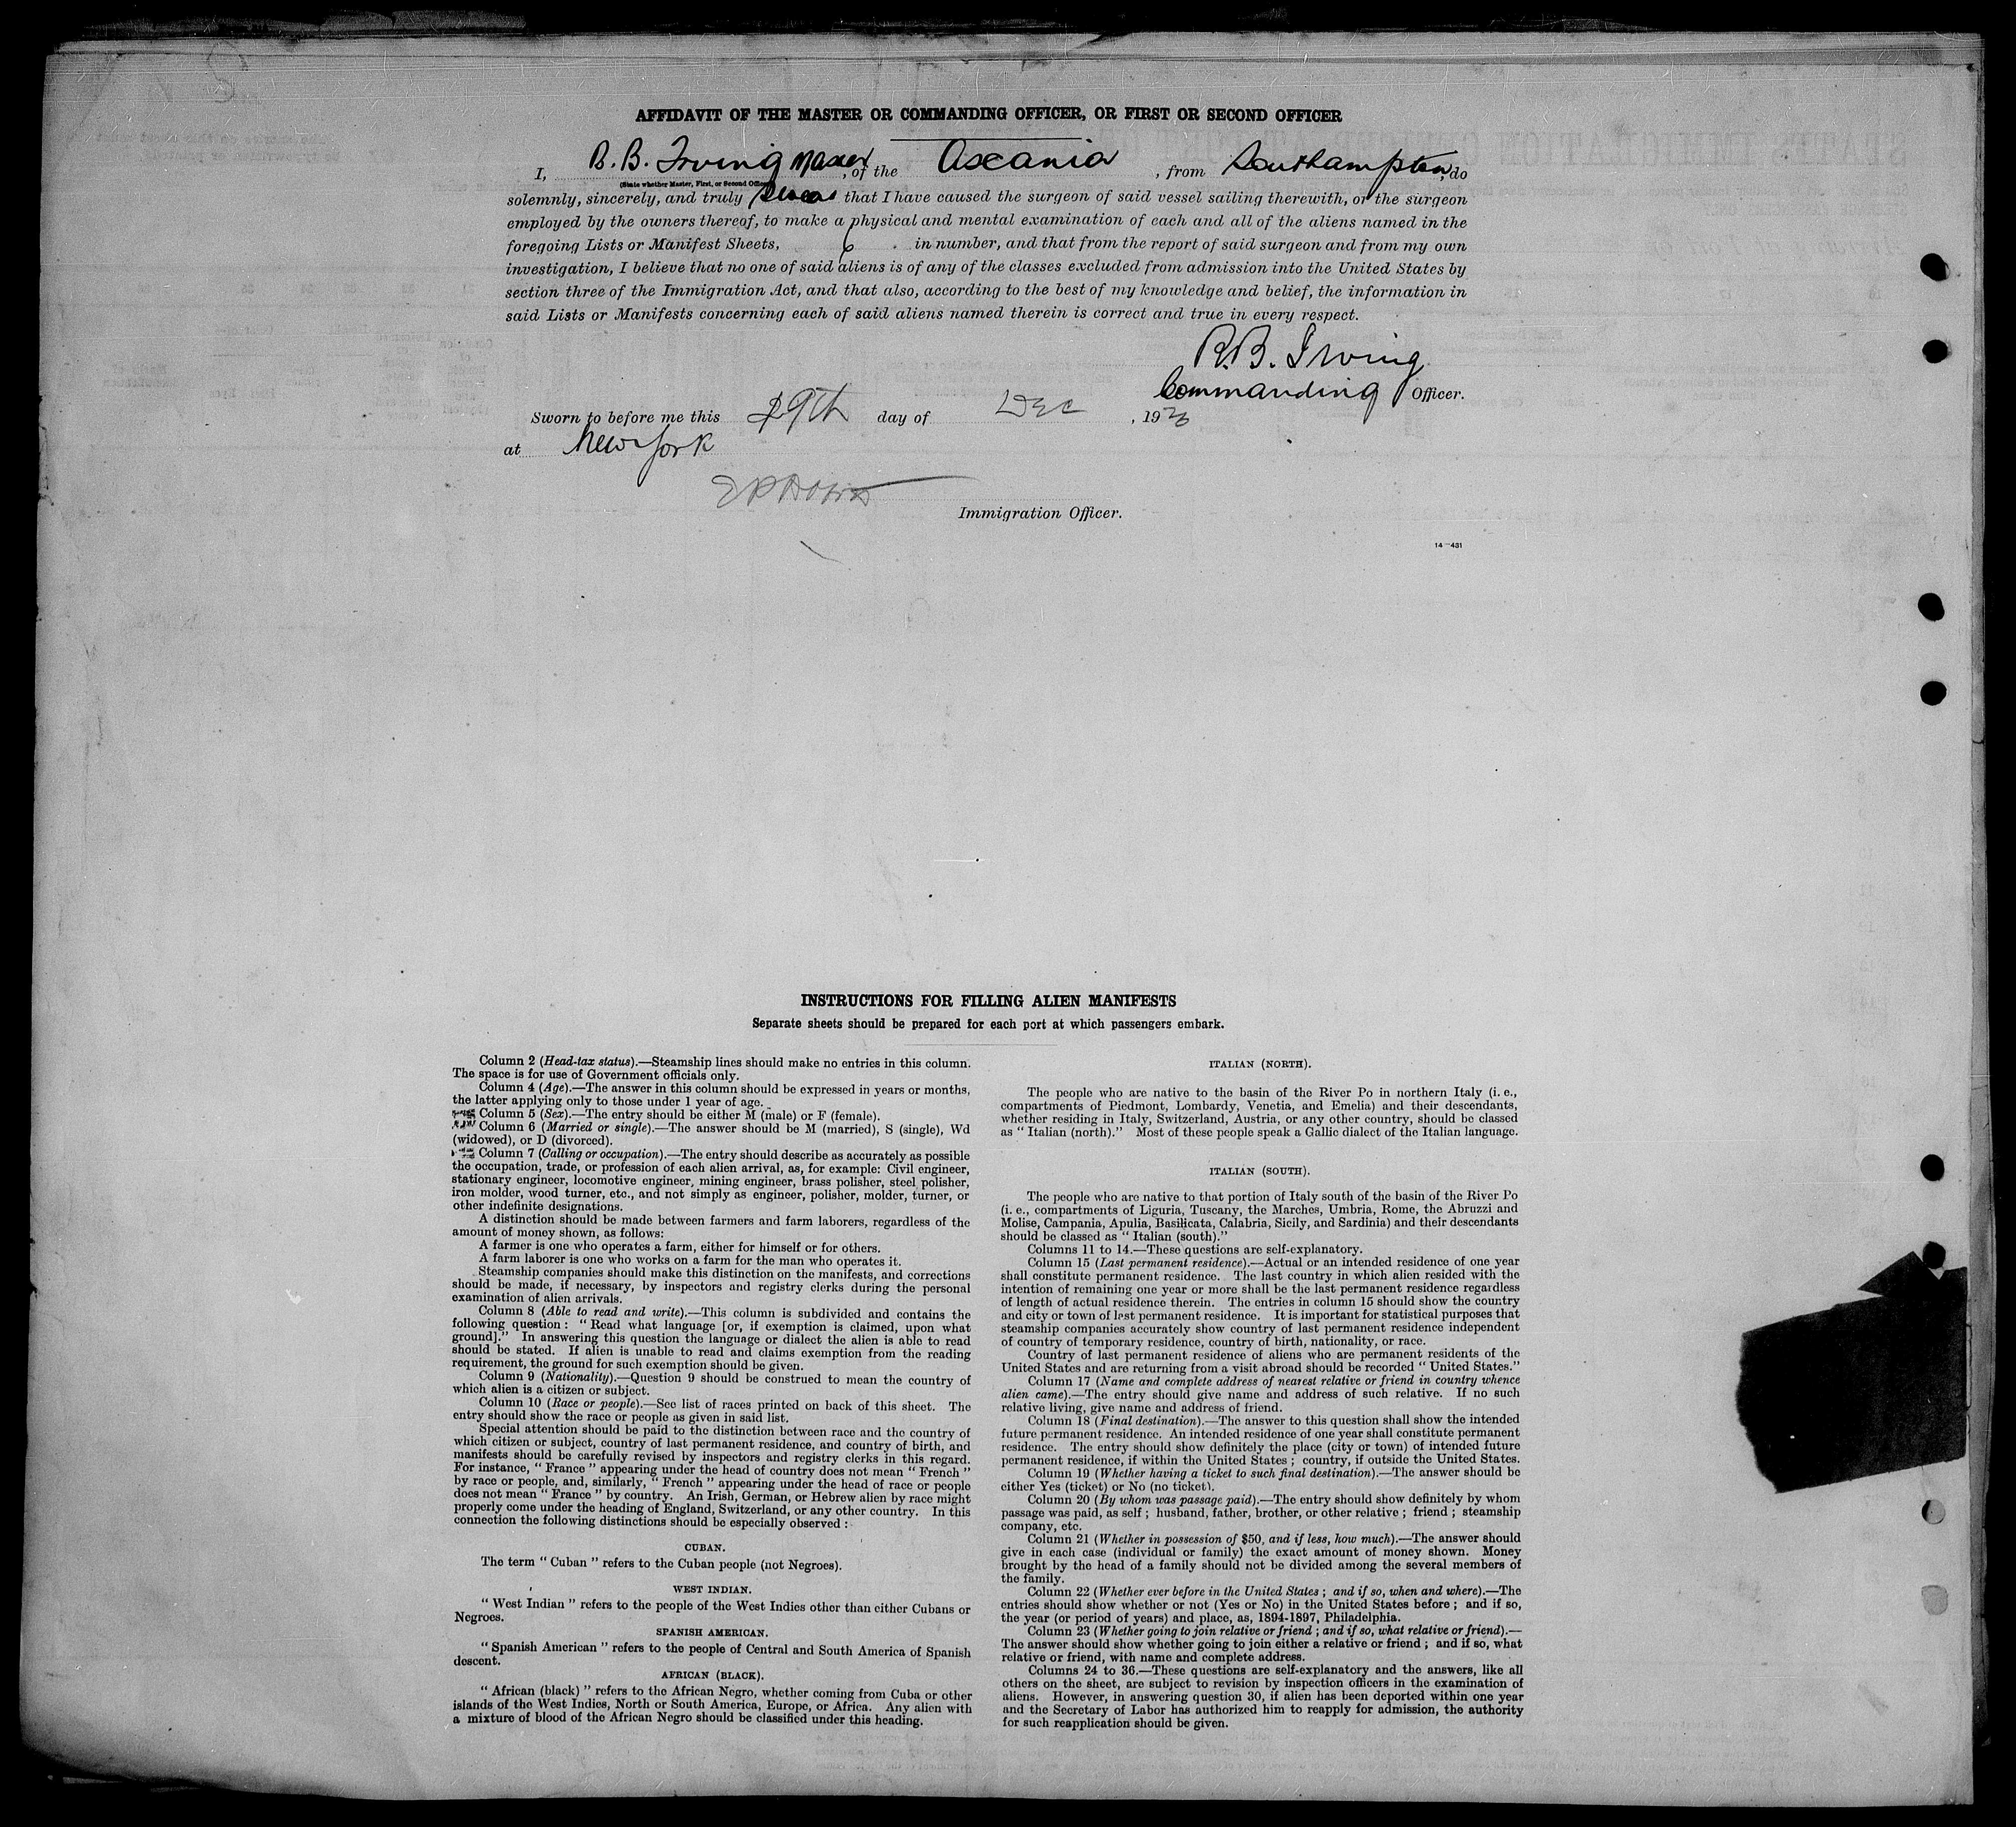 AFFIDAVIT OF THE MASTER OR COMMANDING OFFICER, OR FIRST OR SECOND OFFICER
I, R. B. Irving Master, of the Ascania, from Southampton, do
(State whether Master, First, or Second Officer)
solemnly, sincerely, and truly swear that I have caused the surgeon of said vessel sailing therewith, or the surgeon
employed by the owners thereof, to make a physical and mental examination of each and all of the aliens named in the
foregoing Lists or Manifest Sheets, 6 in number, and that from the report of said surgeon and from my own
investigation, I believe that no one of said aliens is of any of the classes excluded from admission into the United States by
section three of the Immigration Act, and that also, according to the best of my knowledge and belief, the information in
said Lists or Manifests concerning each of said aliens named therein is correct and true in every respect.
R.B. Irving
Commanding Officer.
Sworn to before me this 29th day of Dec, 19
at New York
Immigration Officer.
14—431
INSTRUCTIONS FOR FILLING ALIEN MANIFESTS
Separate sheets should be prepared for each port at which passengers embark.
Column 2 (Head-tax status).—Steamship lines should make no entries in this column.
The space is for use of Government officials only.
Column 4 (Age).—The answer in this column should be expressed in years or months,
the latter applying only to those under 1 year of age.
Column 5 (Sex).—The entry should be either M (male) or F (female).
Column 6 (Married or single).—The answer should be M (married), S (single), Wd
(widowed), or D (divorced).
Column 7 (Calling or occupation).—The entry should describe as accurately as possible
the occupation, trade, or profession of each alien arrival, as, for example: Civil engineer,
stationary engineer, locomotive engineer, mining engineer, brass polisher, steel polisher,
iron molder, wood turner, etc., and not simply as engineer, polisher, molder, turner, or
other indefinite designations.
A distinction should be made between farmers and farm laborers, regardless of the
amount of money shown, as follows:
A farmer is one who operates a farm, either for himself or for others.
A farm laborer is one who works on a farm for the man who operates it.
Steamship companies should make this distinction on the manifests, and corrections
should be made, if necessary, by inspectors and registry clerks during the personal
examination of alien arrivals.
Column 8 (Able to read and write).—This column is subdivided and contains the
following question: "Read what language [or, if exemption is claimed, upon what
ground]." In answering this question the language or dialect the alien is able to read
should be stated. If alien is unable to read and claims exemption from the reading
requirement, the ground for such exemption should be given.
Column 9 (Nationality).—Question 9 should be construed to mean the country of
which alien is a citizen or subject.
Column 10 (Race or people).—See list of races printed on back of this sheet. The
entry should show the race or people as given in said list.
Special attention should be paid to the distinction between race and the country of
which citizen or subject, country of last permanent residence, and country of birth, and
manifests should be carefully revised by inspectors and registry clerks in this regard.
For instance, "France" appearing under the head of country does not mean "French"
by race or people, and, similarly, "French" appearing under the head of race or people
does not mean "France" by country. An Irish, German, or Hebrew alien by race might
properly come under the heading of England, Switzerland, or any other country. In this
connection the following distinctions should be especially observed:
CUBAN.
The term "Cuban" refers to the Cuban people (not Negroes).
WEST INDIAN.
"West Indian" refers to the people of the West Indies other than either Cubans or
Negroes.
SPANISH AMERICAN.
"Spanish American" refers to the people of Central and South America of Spanish
descent.
AFRICAN (BLACK).
"African (black)" refers to the African Negro, whether coming from Cuba or other
islands of the West Indies, North or South America, Europe, or Africa. Any alien with
a mixture of blood of the African Negro should be classified under this heading.
ITALIAN (NORTH).
The people who are native to the basin of the River Po in northern Italy (i. e.,
compartments of Piedmont, Lombardy, Venetia, and Emelia) and their descendants,
whether residing in Italy, Switzerland, Austria, or any other country, should be classed
as "Italian (north)." Most of these people speak a Gallic dialect of the Italian language.
ITALIAN (SOUTH).
The people who are native to that portion of Italy south of the basin of the River Po
(i. e., compartments of Liguria, Tuscany, the Marches, Umbria, Rome, the Abruzzi and
Molise, Campania, Apulia, Basilicata, Calabria, Sicily, and Sardinia) and their descendants
should be classed as "Italian (south)."
Columns 11 to 14.—These questions are self-explanatory.
Column 15 (Last permanent residence).—Actual or an intended residence of one year
shall constitute permanent residence. The last country in which alien resided with the
intention of remaining one year or more shall be the last permanent residence regardless
of length of actual residence therein. The entries in column 15 should show the country
and city or town of last permanent residence. It is important for statistical purposes that
steamship companies accurately show country of last permanent residence independent
of country of temporary residence, country of birth, nationality, or race.
Country of last permanent residence of aliens who are permanent residents of the
United States and are returning from a visit abroad should be recorded "United States."
Column 17 (Name and complete address of nearest relative or friend in country whence
alien came).—The entry should give name and address of such relative. If no such
relative living, give name and address of friend.
Column 18 (Final destination).—The answer to this question shall show the intended
future permanent residence. An intended residence of one year shall constitute permanent
residence. The entry should show definitely the place (city or town) of intended future
permanent residence, if within the United States; country, if outside the United States.
Column 19 (Whether having a ticket to such final destination).—The answer should be
either Yes (ticket) or No (no ticket).
Column 20 (By whom was passage paid).—The entry should show definitely by whom
passage was paid, as self; husband, father, brother, or other relative; friend; steamship
company, etc.
Column 21 (Whether in possession of $50, and if less, how much).—The answer should
give in each case (individual or family) the exact amount of money shown. Money
brought by the head of a family should not be divided among the several members of
the family.
Column 22 (Whether ever before in the United States; and if so, when and where).—The
entries should show whether or not (Yes or No) in the United States before; and if so,
the year (or period of years) and place, as, 1894-1897, Philadelphia.
Column 23 (Whether going to join relative or friend; and if so, what relative or friend).—
The answer should show whether going to join either a relative or friend; and if so, what
relative or friend, with name and complete address.
Columns 24 to 36.—These questions are self-explanatory and the answers, like all
others on the sheet, are subject to revision by inspection officers in the examination of
aliens. However, in answering question 30, if alien has been deported within one year
and the Secretary of Labor has authorized him to reapply for admission, the authority
for such reapplication should be given.